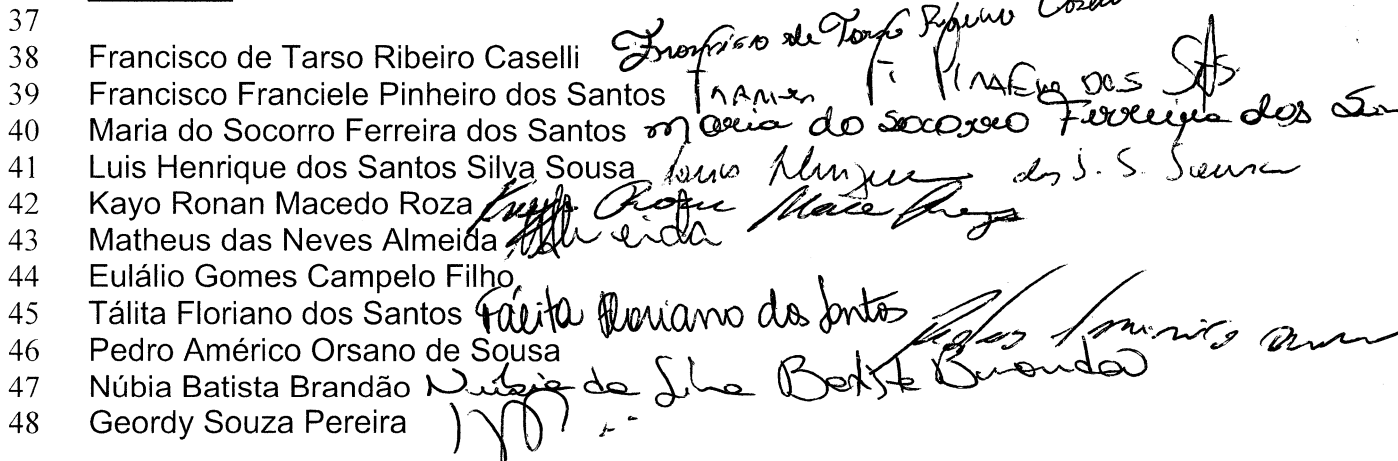 37
38 Francisco de Tarso Ribeiro Caselli Francisco de Tarso Ribeiro
39 Francisco Franciele Pinheiro dos Santos F. Pinheiro dos
40 Maria do Socorro Ferreira dos Santos Maria do Socorro Ferreira dos
41 Luis Henrique dos Santos Silva Sousa Luis Henrique dos S. S. Sousa
42 Kayo Ronan Macedo Roza Kayo Ronan Macedo Roza
43 Matheus das Neves Almeida Almeida
44 Eulálio Gomes Campelo Filho
45 Tálita Floriano dos Santos Tálita Floriano dos Santos
46 Pedro Américo Orsano de Sousa Pedro Américo
47 Núbia Batista Brandão Núbia da Silva Batista Brandão
48 Geordy Souza Pereira